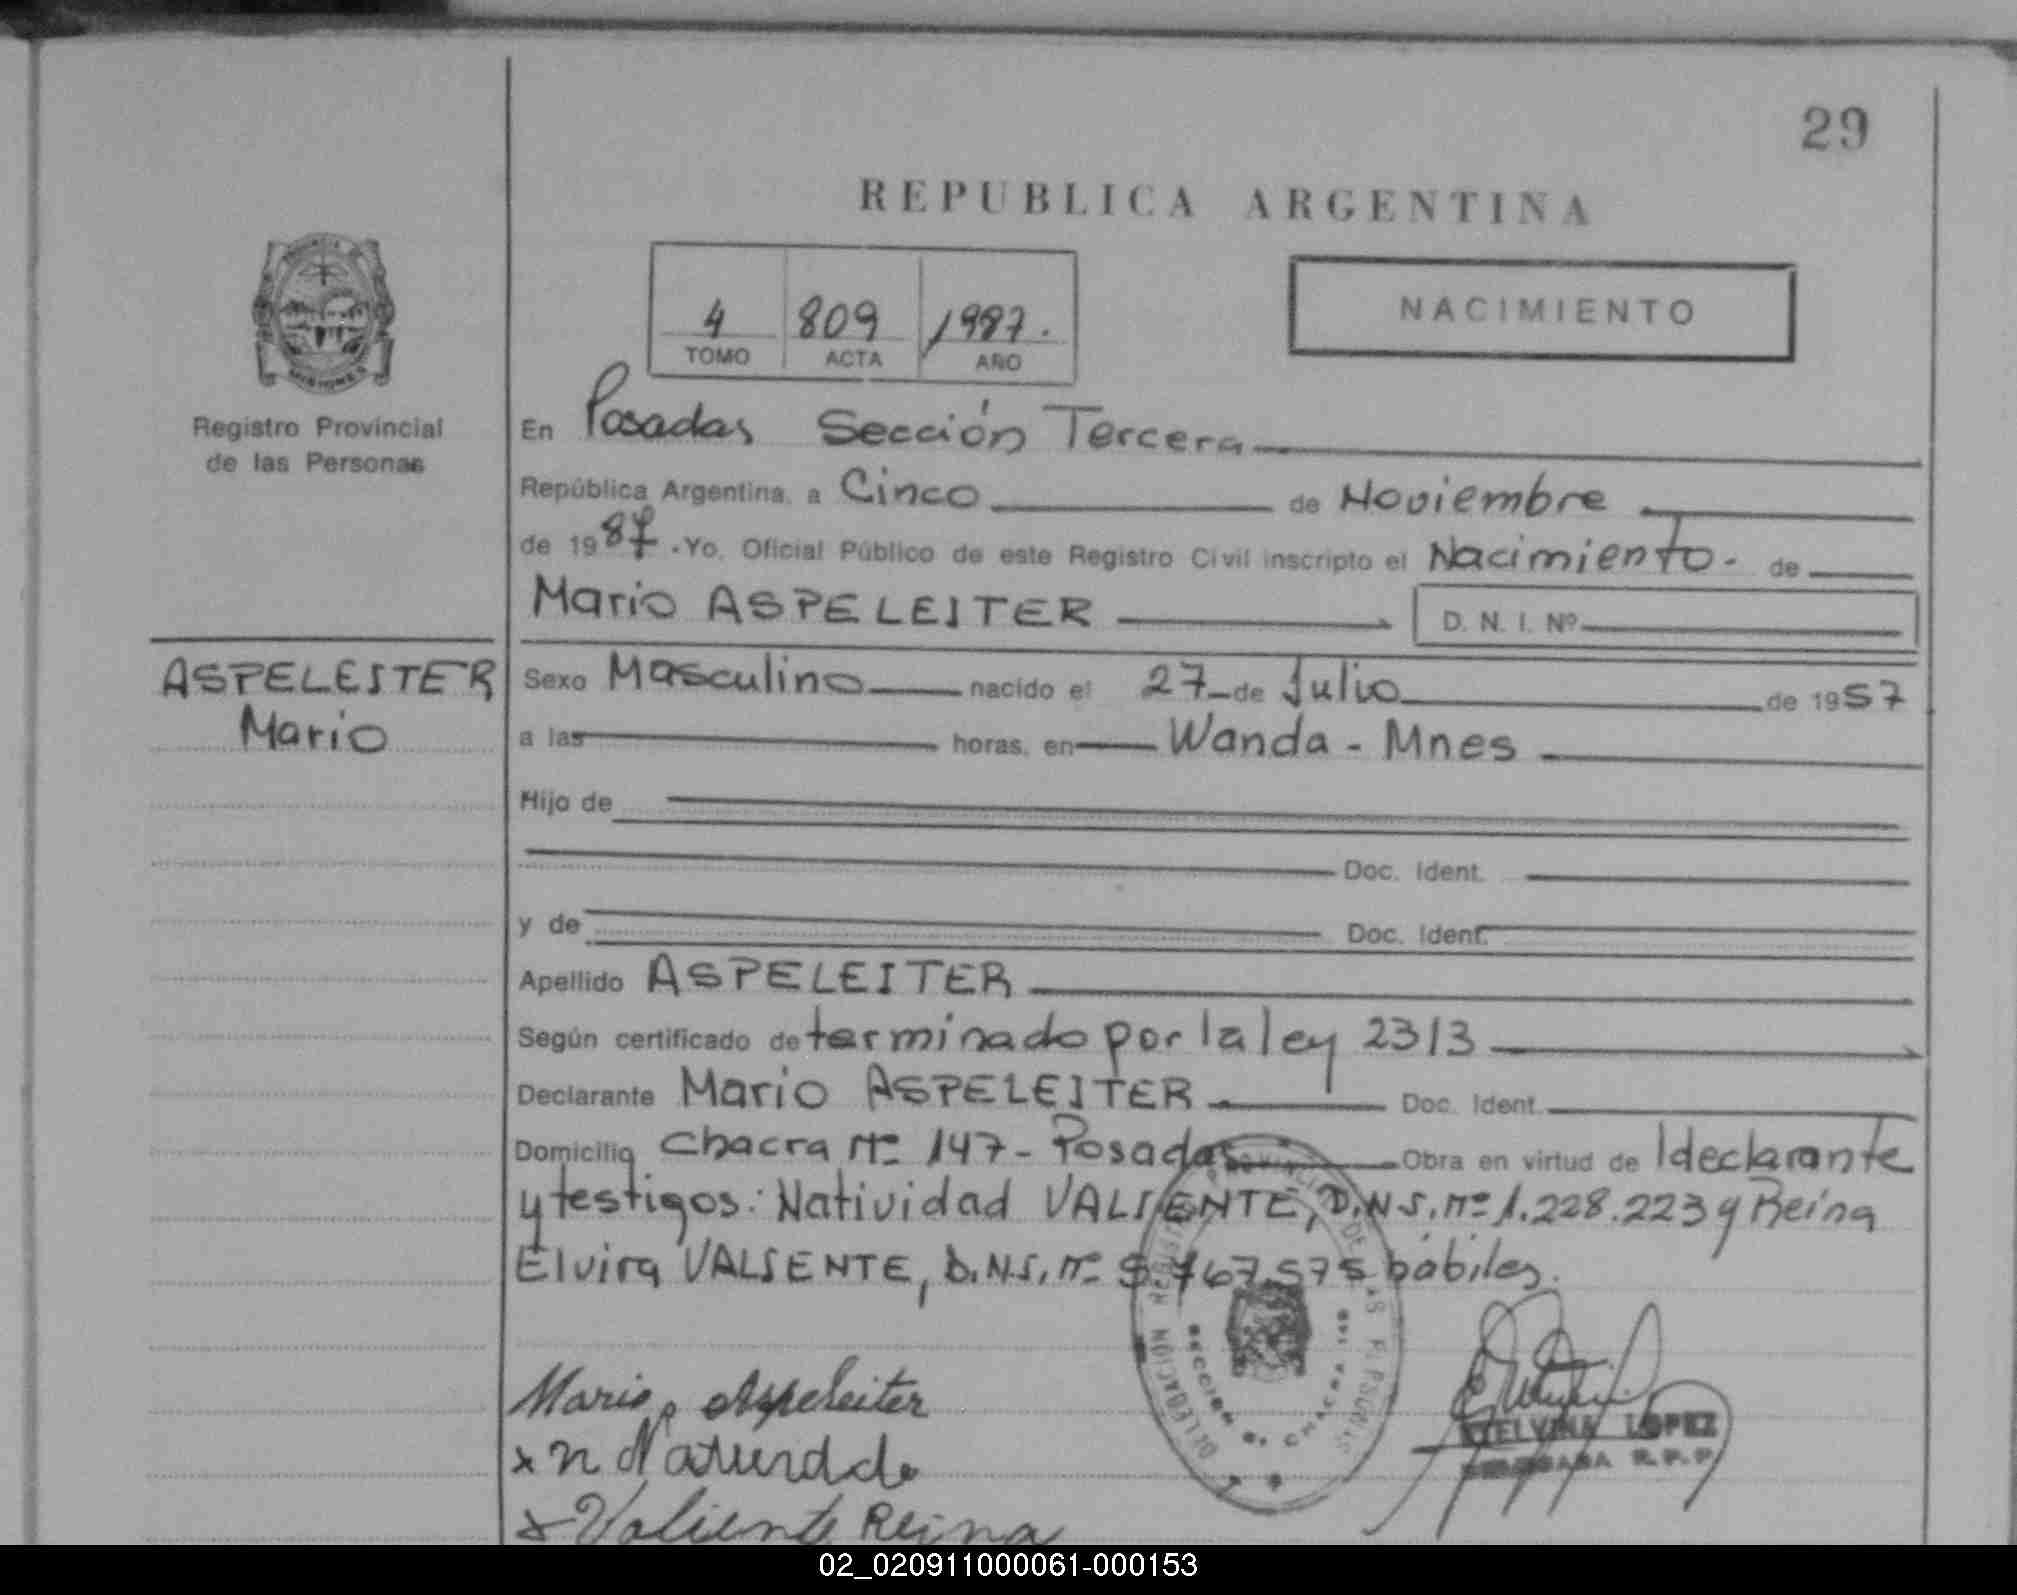 29
REPUBLICA ARGENTINA
4 809 1987.
TOMO ACTA AÑO
NACIMIENTO
MISIONES
Registro Provincial
de las Personas
En Posadas Sección Tercera
República Argentina, a Cinco de Noviembre
de 1987 . Yo, Oficial Público de este Registro Civil inscripto el Nacimiento - de
Mario ASPELEITER D. N. I. Nº
ASPELEITER
Mario
Sexo Masculino nacido el 27 de Julio de 1957
a las horas, en Wanda - Mnes
Hijo de
Doc. Ident.
y de Doc. Ident.
Apellido ASPELEITER
Según certificado determinado por la ley 2313
Declarante Mario ASPELEITER Doc. Ident.
Domicilio Chacra Nº 147 - Posadas Obra en virtud de ldeclarante
y testigos: Natividad VALIENTE, D.N.I. nº 1.228.223 y Reina
Elvira VALIENTE, D.N.I. nº 767.575 hábiles.
DELEGACION
SECCION CHACRA
Mario Aspeleiter
x n
x Valiente Reina
LOPEZ
R.P.P
02_020911000061-000153